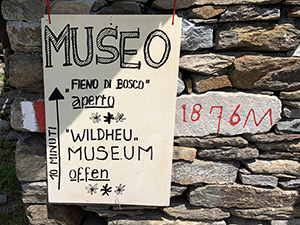 MUSEO
"FIENO DI BOSCO"
aperto
"WILDHEU"
MUSEUM
offen
10 MINUTI
1876M